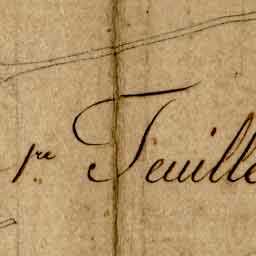 1re Feuille